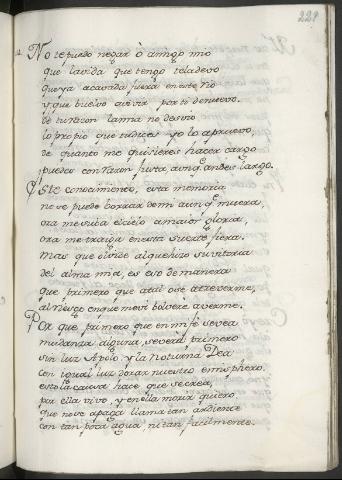 229
No te puedo negar ô amigo mio
que la vida que tengo te la devo
que ya acavada fuera en este rio
y que buelvo a vivir por ti de nuevo.
de tu raçon la mia no desvio
lo propio que tu dices yo lo apruevo,
de quanto me quisieres hacer cargo
puedes con raçon justa, aunq. andes largo.
Este conocimiento, esta memoria
no se puede borrar de mi aunq. muera,
ora me suba el cielo a maior gloria,
ora me traiga en esta suerte fiera.
mas que olvide al que hiço su vitoria
del alma mia, es eso de manera
que primero que a tal ose atreverme,
al riesgo en que me vi bolveré a verme.
Por que, primero que en mi fé se vea
mudanza alguna, se verá primero
sin luz Apolo. y la noturna Dea
con igual luz dorar nuestro emispherio.
esto la causa hace que se crea,
por ella vivo, y en ella morir quiero.
que no se apaga llama tan ardiente
con tan poca agua, ni tan facilmente.